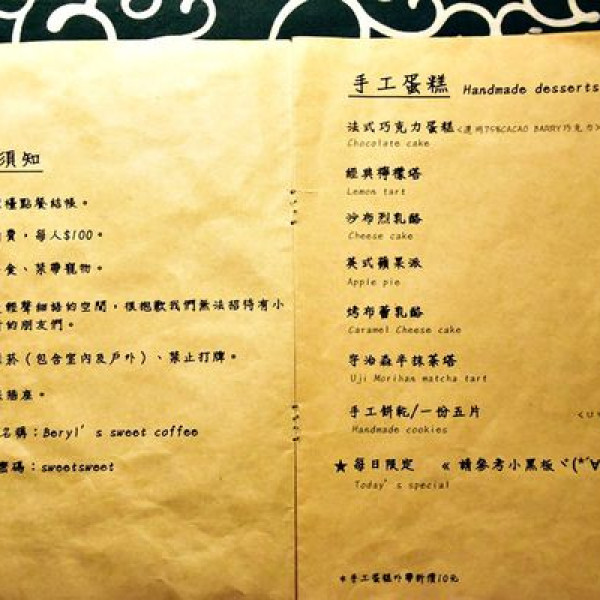 須知
檯點餐結帳。
費,每人$100。
食、禁帶寵物。
輕聲細語的空間,很抱歉我們無法招待有小
的朋友們。
菸(包含室內及戶外)、禁止打牌。
插座。
名稱:Beryl's sweet coffee
密碼:sweetsweet
手工蛋糕 Handmade desserts
法式巧克力蛋糕<選用75%CACAO BARRY巧克力>
Chocolate cake
經典檸檬塔
Lemon tart
沙布烈乳酪
Cheese cake
英式蘋果派
Apple pie
烤布蕾乳酪
Caramel Cheese cake
宇治森半抹茶塔
Uji Morihan matcha tart
手工餅乾/一份五片
Handmade cookies
★ 每日限定 《 請參考小黑板ヾ(*´∀
Today's special
*手工蛋糕外帶折價10元